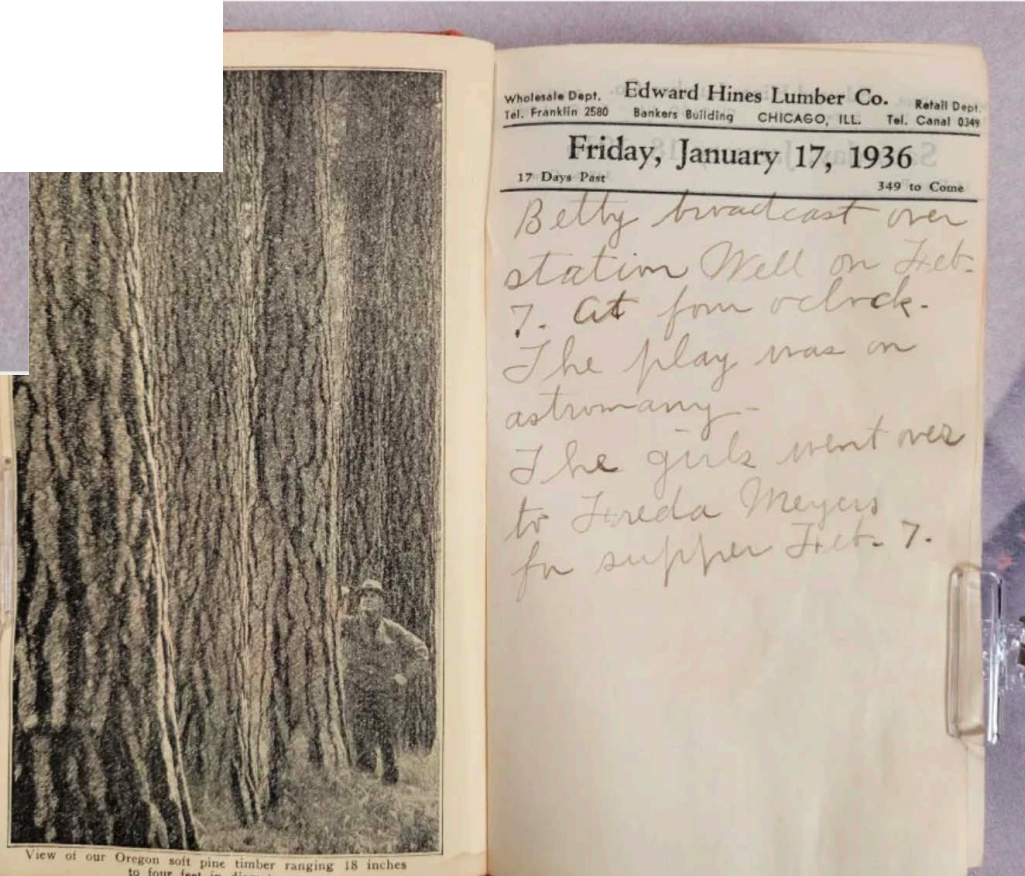 View of our Oregon soft pine timber ranging 18 inches
to four feet in
Wholesale Dept. Edward Hines Lumber Co. Retail Dept.
Tel. Franklin 2580 Bankers Building CHICAGO, ILL. Tel. Canal 0349
Friday, January 17, 1936
17 Days Past 349 to Come
Betty broadcast over
station Well on Feb.
7. At four oclock.
The play was on
astromany -
The girls went over
to Freda Meyers
for supper Feb. 7.